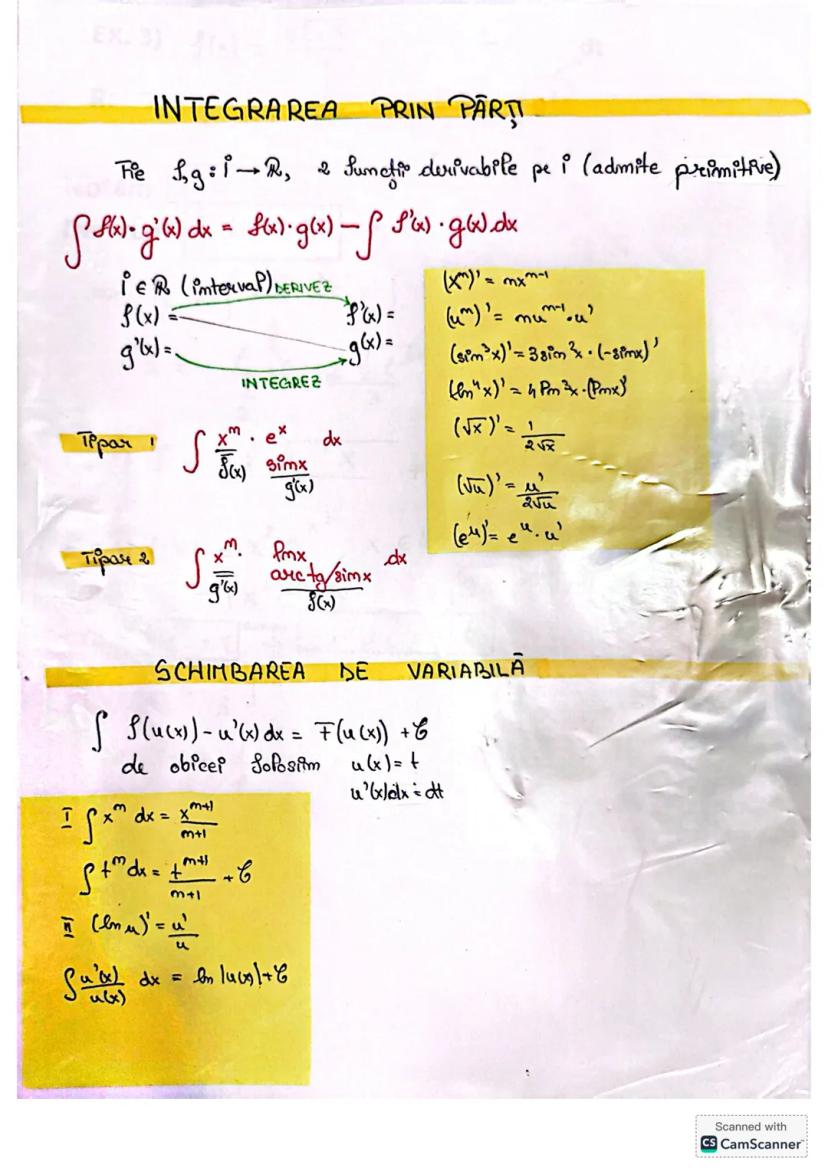 INTEGRAREA PRIN PĂRȚI
Fie f,g: i → R, 2 funcții derivabile pe i (admite primitive)
∫ f(x)·g'(x) dx = f(x)·g(x) − ∫ f'(x)·g(x) dx
i ∈ R (interval) DERIVEZ
f(x) = f'(x) =
g'(x) = g(x) =
INTEGREZ
(xⁿ)' = nxⁿ⁻¹
(uⁿ)' = nuⁿ⁻¹·u'
(sin³x)' = 3sin²x·(-sinx)'
(ln⁴x)' = 4 ln³x·(lnx)'
(√x)' = 1/2√x
(√u)' = u'/2√u
(eᵘ)' = eᵘ·u'
Tipar 1 ∫ xⁿ · eˣ dx
f(x) sinx
g'(x)
Tipar 2 ∫ xⁿ· lnx dx
g'(x) arctg/sinx
f(x)
SCHIMBAREA DE VARIABILĂ
∫ f(u(x)) - u'(x) dx = F(u(x)) + C
de obicei folosim u(x) = t
u'(x)dx = dt
I ∫ xⁿ dx = xⁿ⁺¹/n+1
∫ tⁿ dx = tⁿ⁺¹/n+1 + C
II (ln u)' = u'/u
∫ u'(x)/u(x) dx = ln |u(x)| + C
Scanned with
CS CamScanner